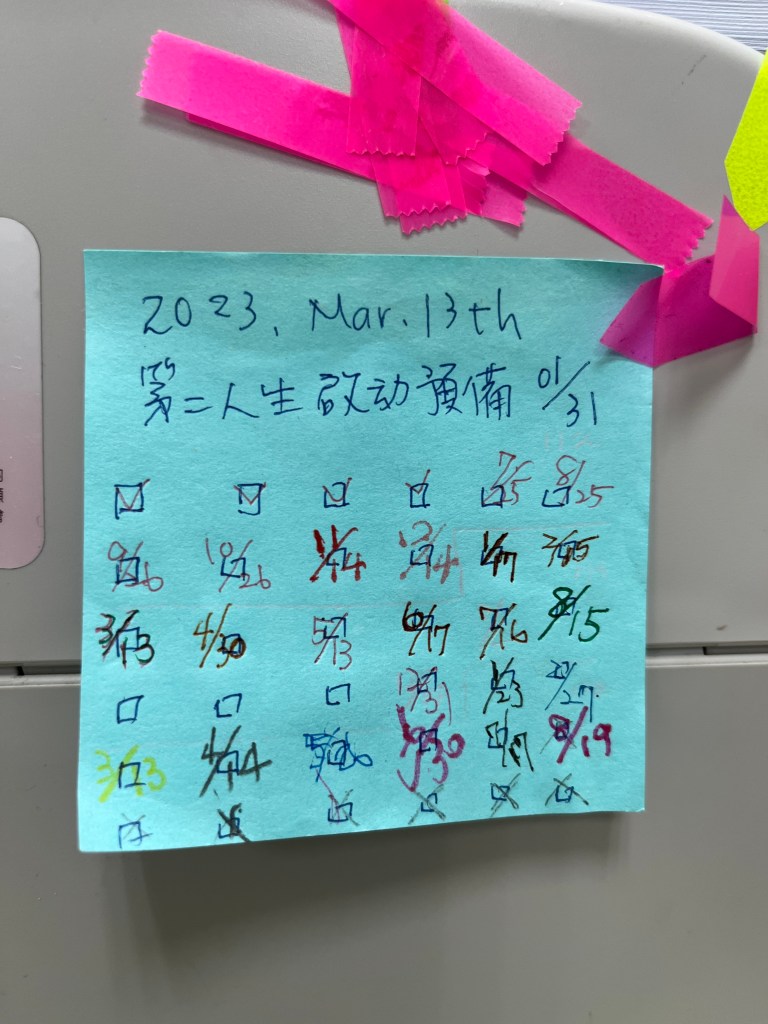 2023. Mar. 13th
第二人生啟动預備 01/31
7/5 8/25
9/26 10/26 11/14 12/14 1/17 2/15
3/13 4/30 5/13 6/17 7/16 8/15
12/31 1/23 2/27
3/13 4/14 5/20 6/30 8/19